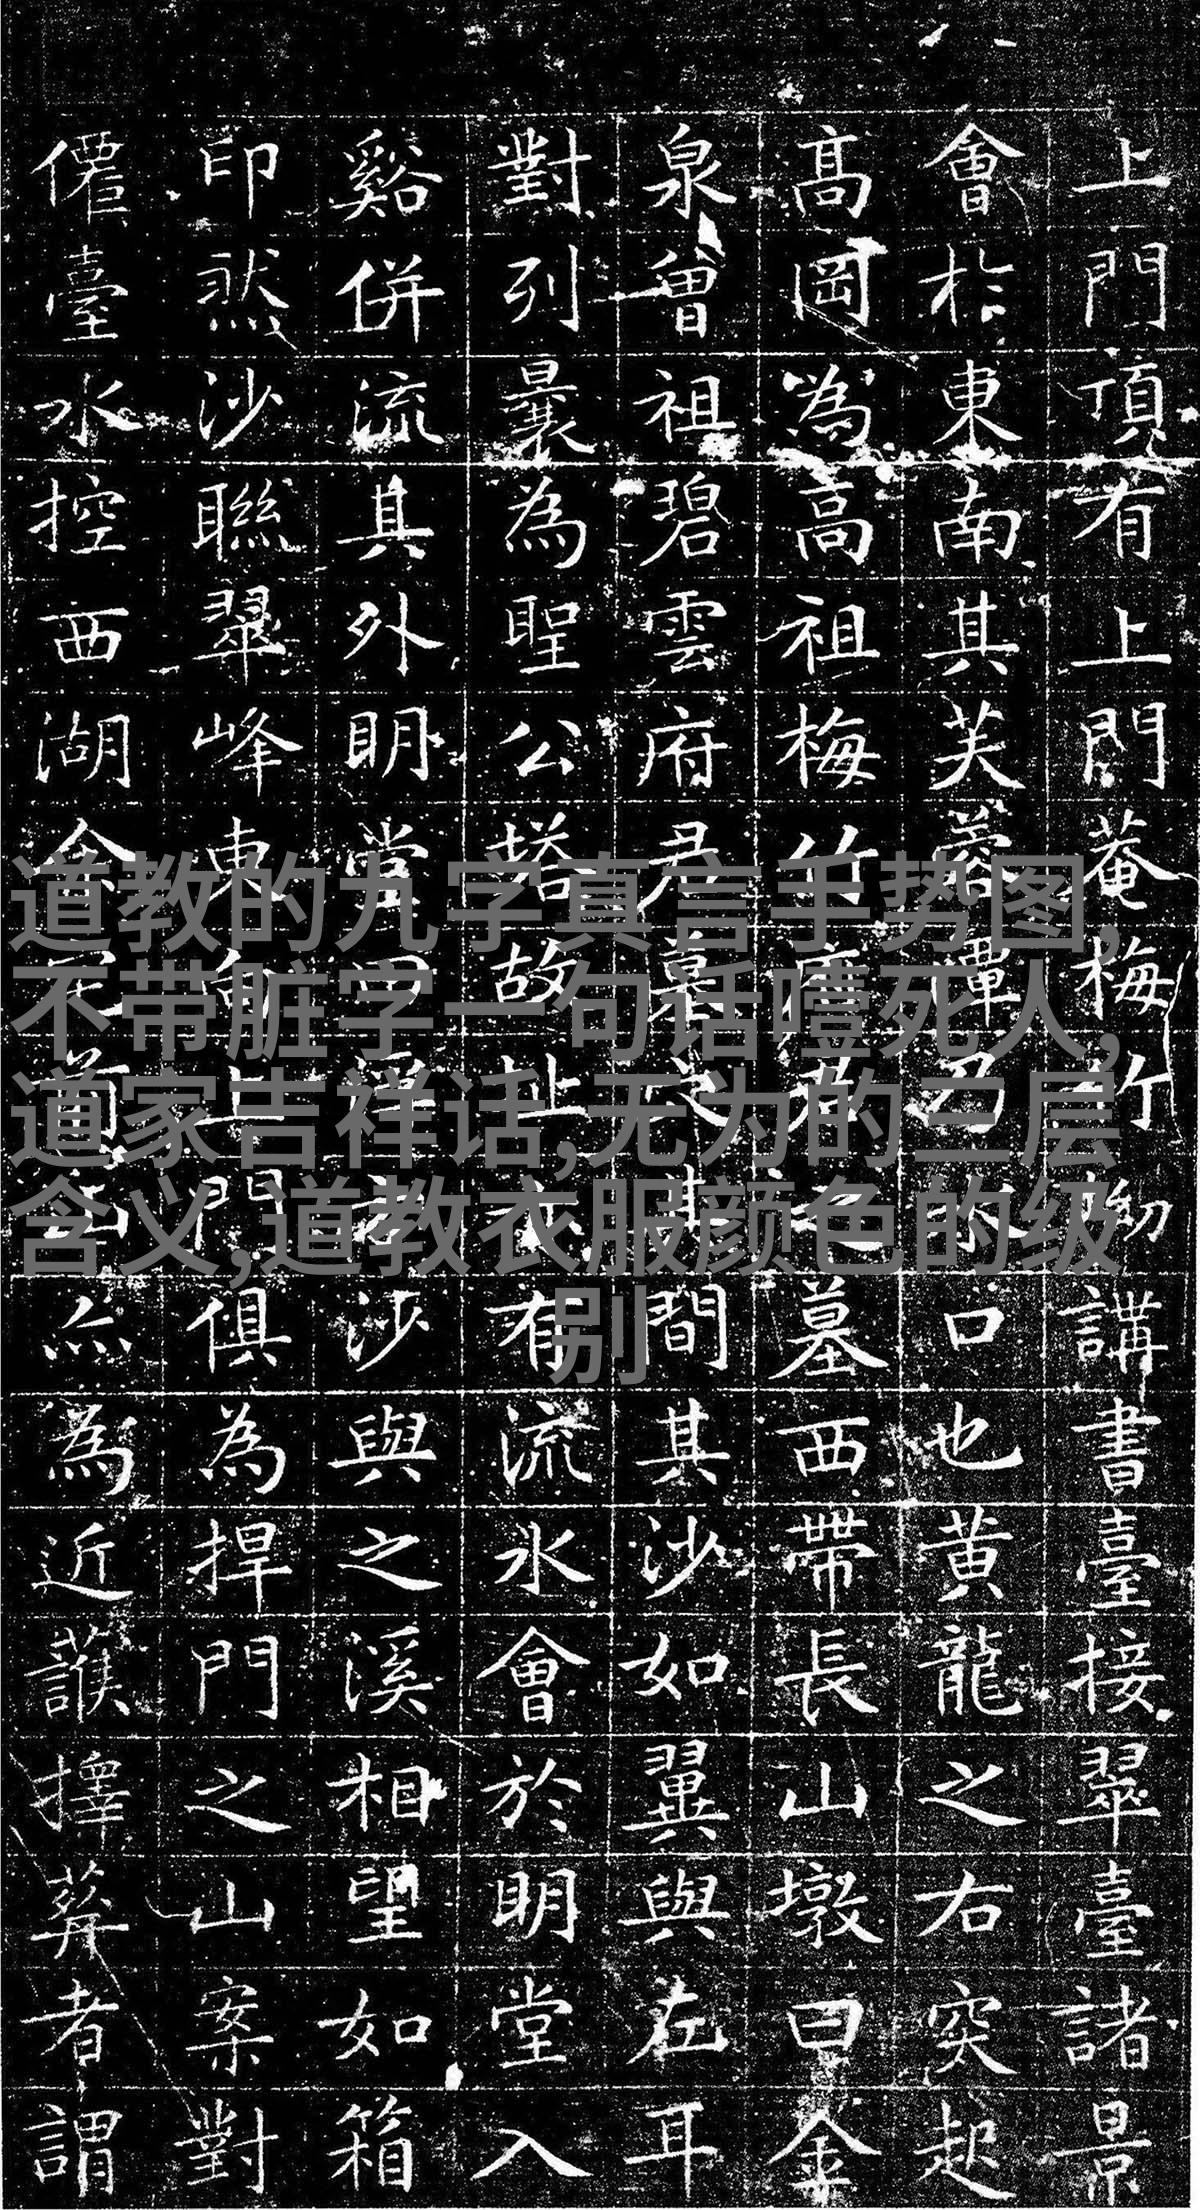 上門頂有上門菴梅竹坳講書臺接翠臺諸景
會於東南其芙蓉潭乃水口也黃龍之右突起
高岡為高祖梅竹府君之墓西帶長山墩曰金
泉曾祖碧雲府君墓穴其間其沙如翼與左耳
對列曩為聖公塔故址亦有流水會於明堂入
谿併流其外明堂沙與之溪相望如箱
印然沙聯翠峰東向上門俱為捍門之山案對
僊臺水控西湖余亦為近擇葬者謂
道教的九字真言手势图,
不带脏字一句话噎死人,
道家吉祥话,无为的三层
含义,道教衣服颜色的级
别